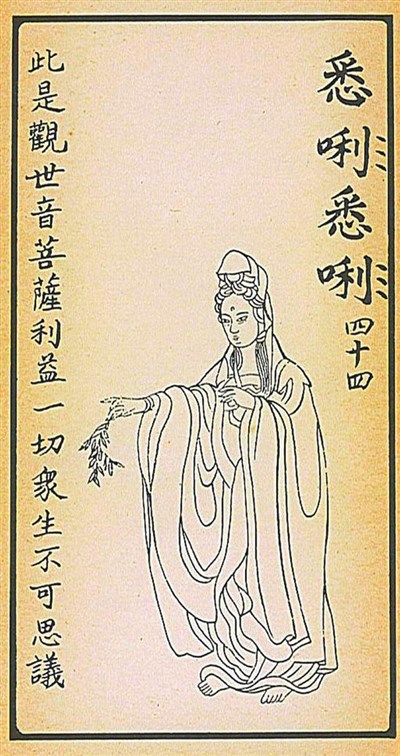 悉唎悉唎 四十四
此是觀世音菩薩利益一切衆生不可思議